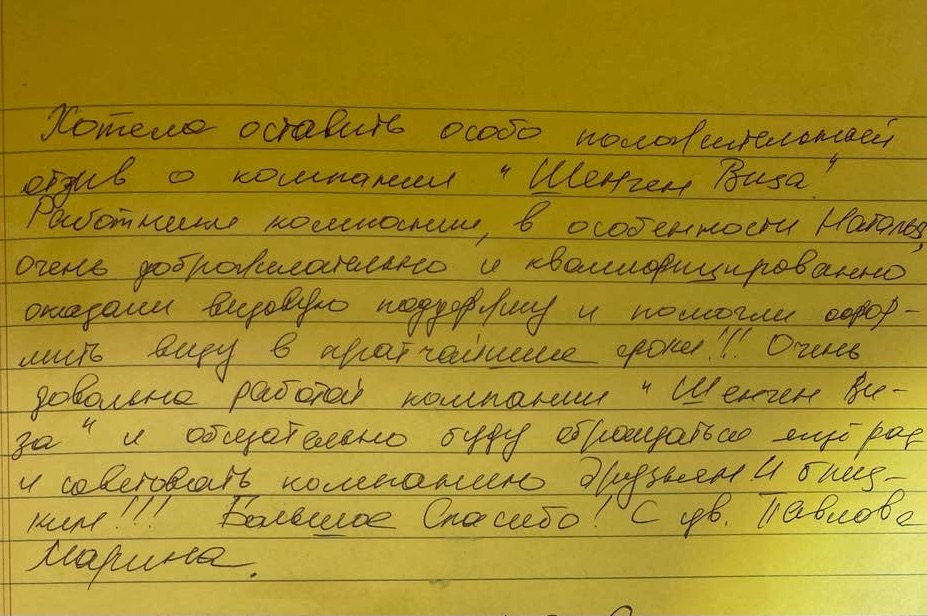 Хотела оставить особо положительный
отзыв о компании "Шенген Виза"
Работники компании, в особенности Наталья,
очень доброжелательно и квалифицированно
оказали визовую поддержку и помогли офор-
мить визу в кратчайшие сроки!!! Очень
довольна работой компании "Шенген Ви-
за" и обязательно буду обращаться ещё раз
и советовать компанию друзьям и близ-
ким!!! Большое Спасибо! С ув. Павлова
Марина.